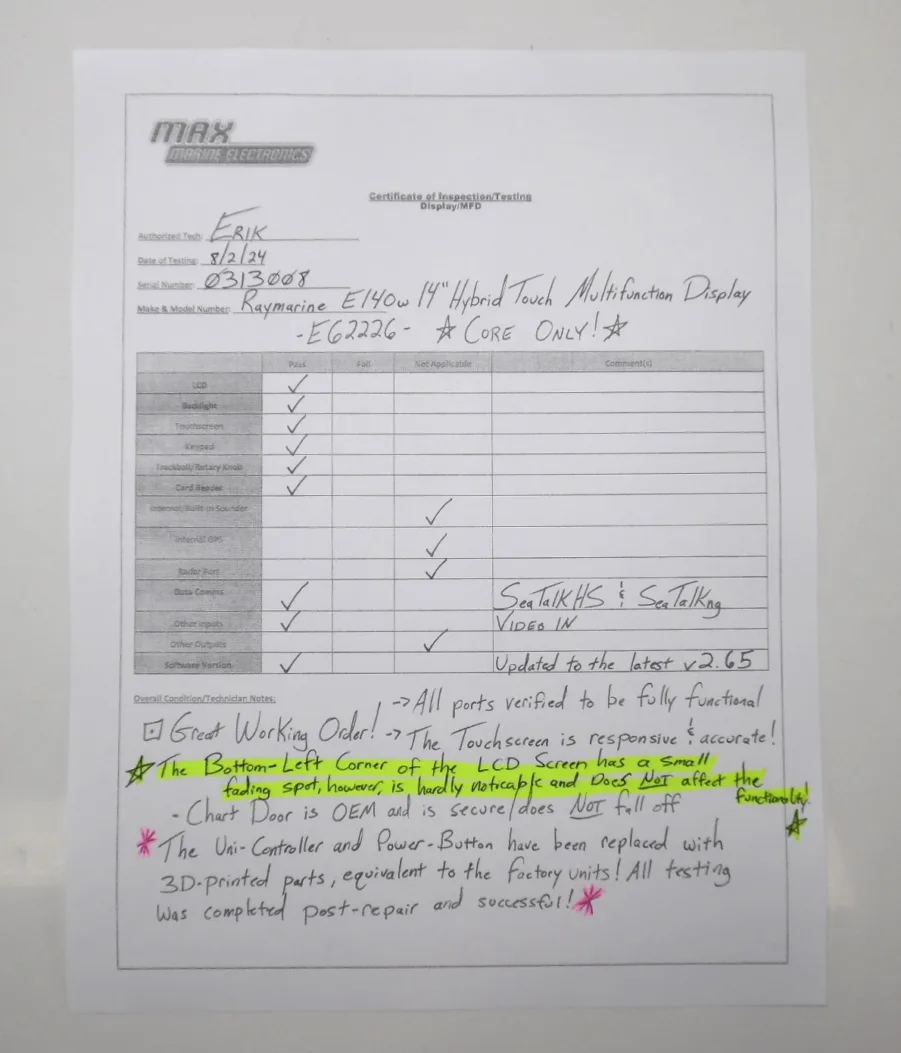 MAX
MARINE ELECTRONICS
Certificate of Inspection/Testing
Display/MFD
Authorized Tech: ERIK
Date of Testing: 8/2/24
Serial Number: 0313008
Make & Model Number: Raymarine E140w 14" Hybrid Touch Multifunction Display
-E62226- ☆ CORE ONLY! ☆
Pass Fail Not Applicable Comment(s)
LCD ✓
Backlight ✓
Touchscreen ✓
Keypad ✓
Trackball/Rotary Knob ✓
Card Reader ✓
Internal/Built-in Sounder ✓
Internal GPS ✓
Radar Port ✓
Data Comms ✓ SeaTalkHS & SeaTalkng
Other Inputs ✓ VIDEO IN
Other Outputs ✓
Software Version ✓ Updated to the latest v2.65
Overall Condition/Technician Notes: -> All ports verified to be fully functional
Great Working Order! -> The Touchscreen is responsive & accurate!
☆ The Bottom-Left Corner of the LCD Screen has a small
fading spot, however, is hardly noticable and Does NOT affect the
functionality! ☆
- Chart Door is OEM and is secure/does NOT fall off
* The Uni-Controller and Power-Button have been replaced with
3D-printed parts, equivalent to the factory units! All testing
was completed post-repair and successful! *